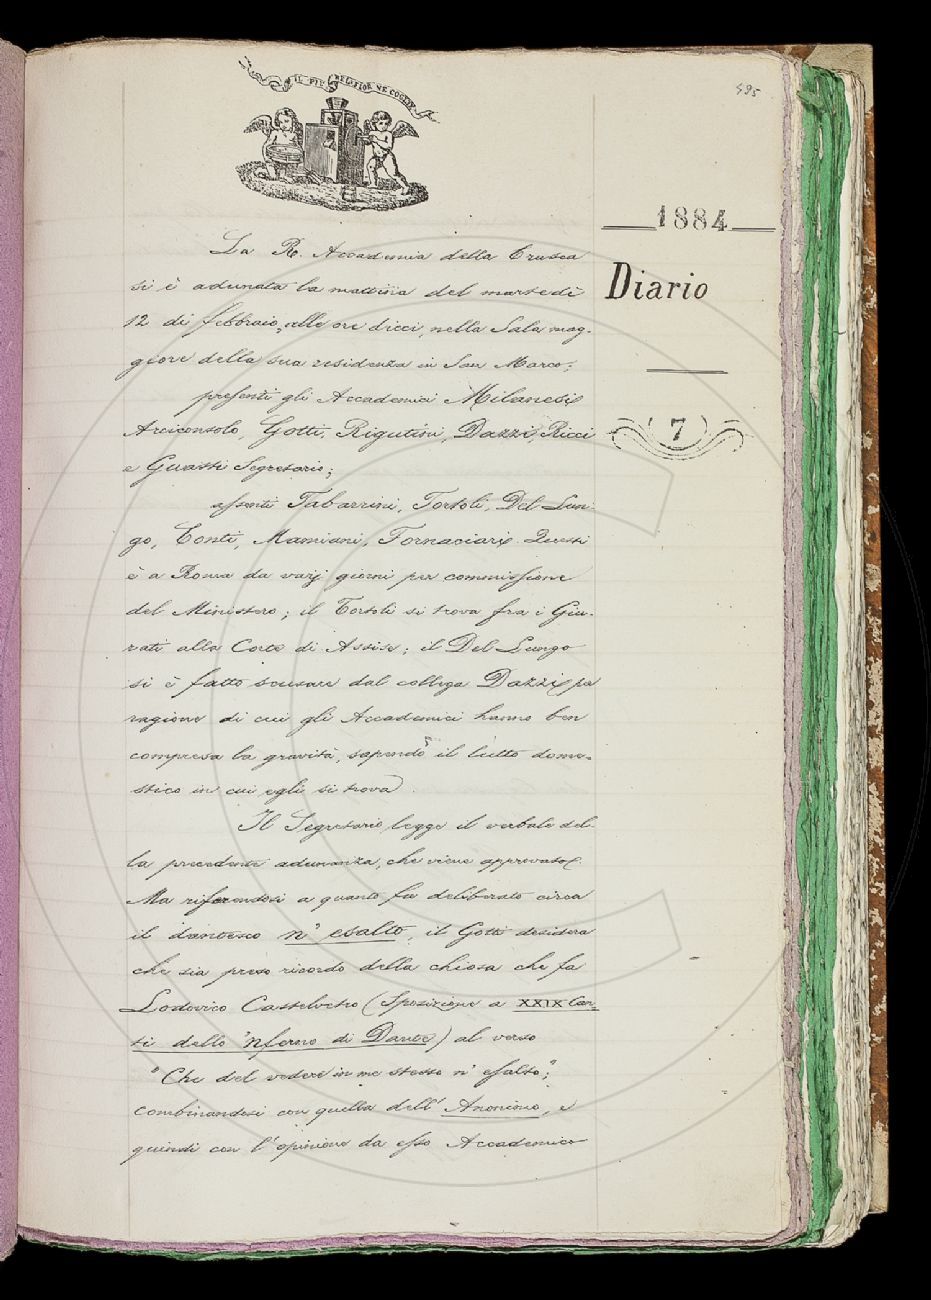 IL PIÙ BEL FIOR NE COGLIE
495
1884
Diario
7
La R. Accademia della Crusca
si è adunata la mattina del martedì
12 di febbraio, alle ore dieci, nella Sala mag-
giore della sua residenza in San Marco;
presenti gli Accademici Milanesi
Arciconsolo, Gotti, Rigutini, Dazzi, Ricci
e Guasti Segretario;
assenti Tabarrini, Tortoli, Del Lun-
go, Conti, Mamiani, Fornaciari. Questi
è a Roma da varj giorni per commissione
del Ministero; il Tortoli si trova fra i Giu-
rati alla Corte di Assise; il Del Lungo
si è fatto scusare dal collega Dazzi per
ragione di cui gli Accademici hanno ben
compresa la gravità, sapendo il lutto dome-
stico in cui egli si trova.
Il Segretario legge il verbale del-
la precedente adunanza, che viene approvato.
Ma riferendosi a quanto fu deliberato circa
il dantesco n' esalto, il Gotti desidera
che sia preso ricordo della chiosa che fa
Lodovico Castelvetro (Sposizione a XXIX Can-
ti dello 'nferno di Dante) al verso
"Che del vedere in me stesso n' esalto";
combinandosi con quella dell' Anonimo, e
quindi con l' opinione da esso Accademico